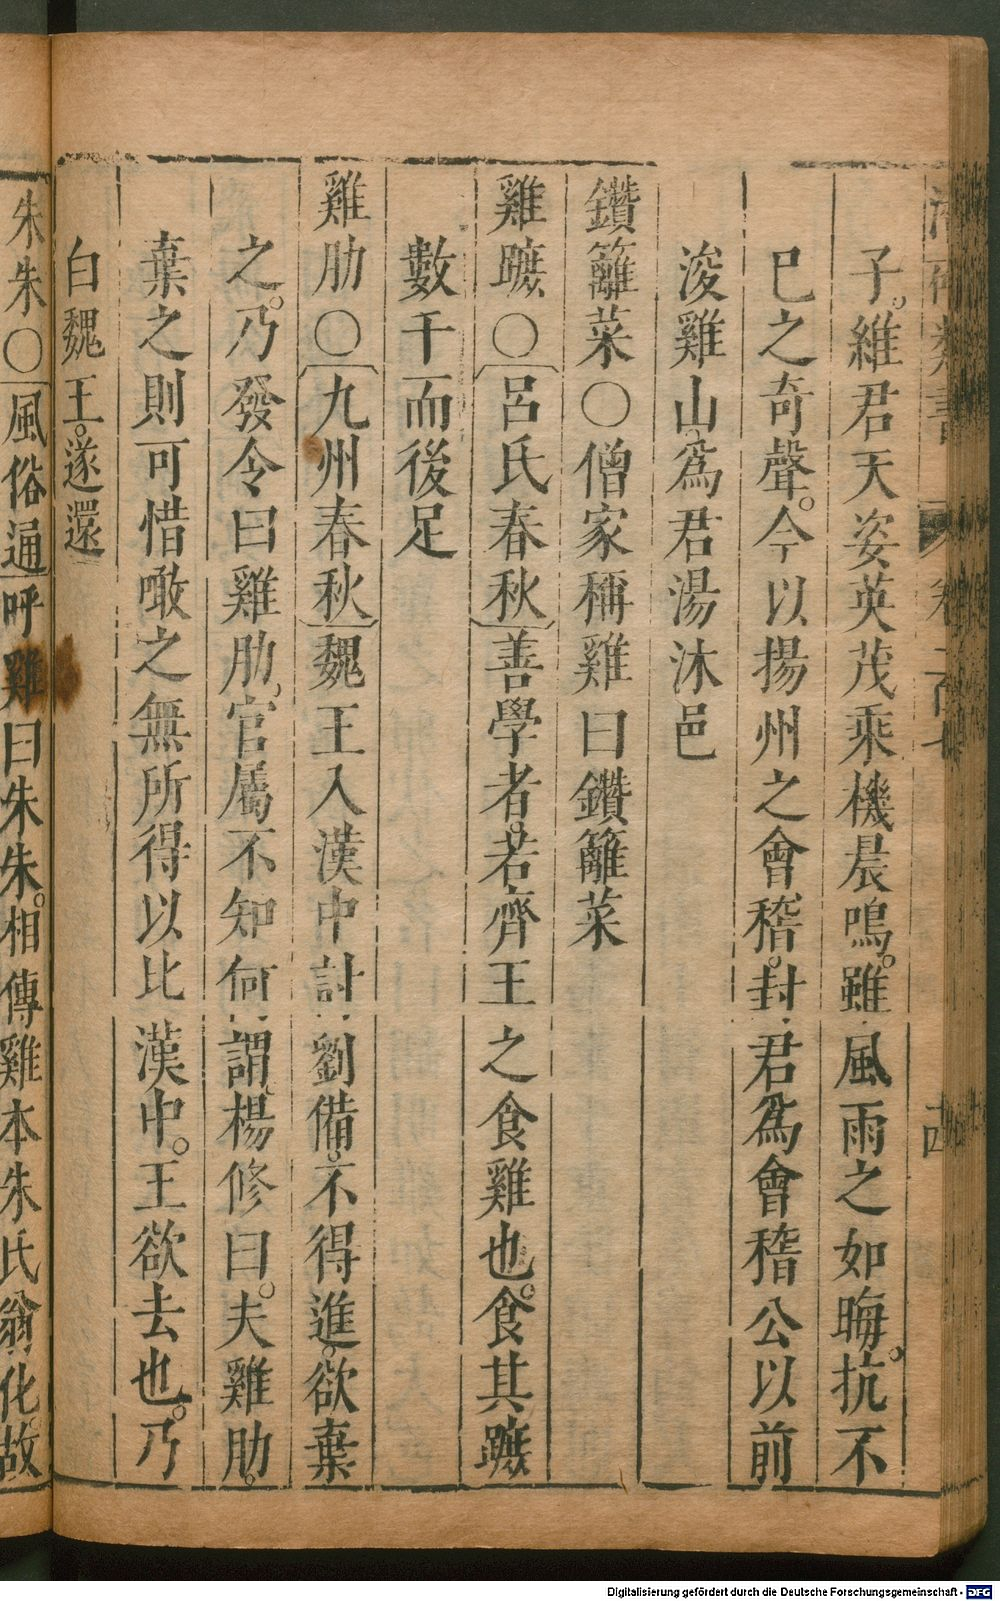 子。維君天姿英茂乘機晨鳴。雖風雨之如晦。抗不
已之奇聲。今以揚州之會稽。封君爲會稽公以前
浚雞山爲君湯沐邑
鑽籬菜〇僧家稱雞曰鑽籬菜
雞蹠〇呂氏春秋善學者。若齊王之食雞也。食其蹠
數千而後足
雞肋〇九州春秋魏王入漢中討劉備。不得進。欲棄
之。乃發令曰雞肋。官屬不知何謂。楊修曰。夫雞肋。
棄之則可惜噉之無所得以比漢中。王欲去也。乃
白魏王。遂還
朱朱〇風俗通呼雞曰朱朱。相傳雞本朱氏翁化。故
Digitalisierung gefördert durch die Deutsche Forschungsgemeinschaft - DFG